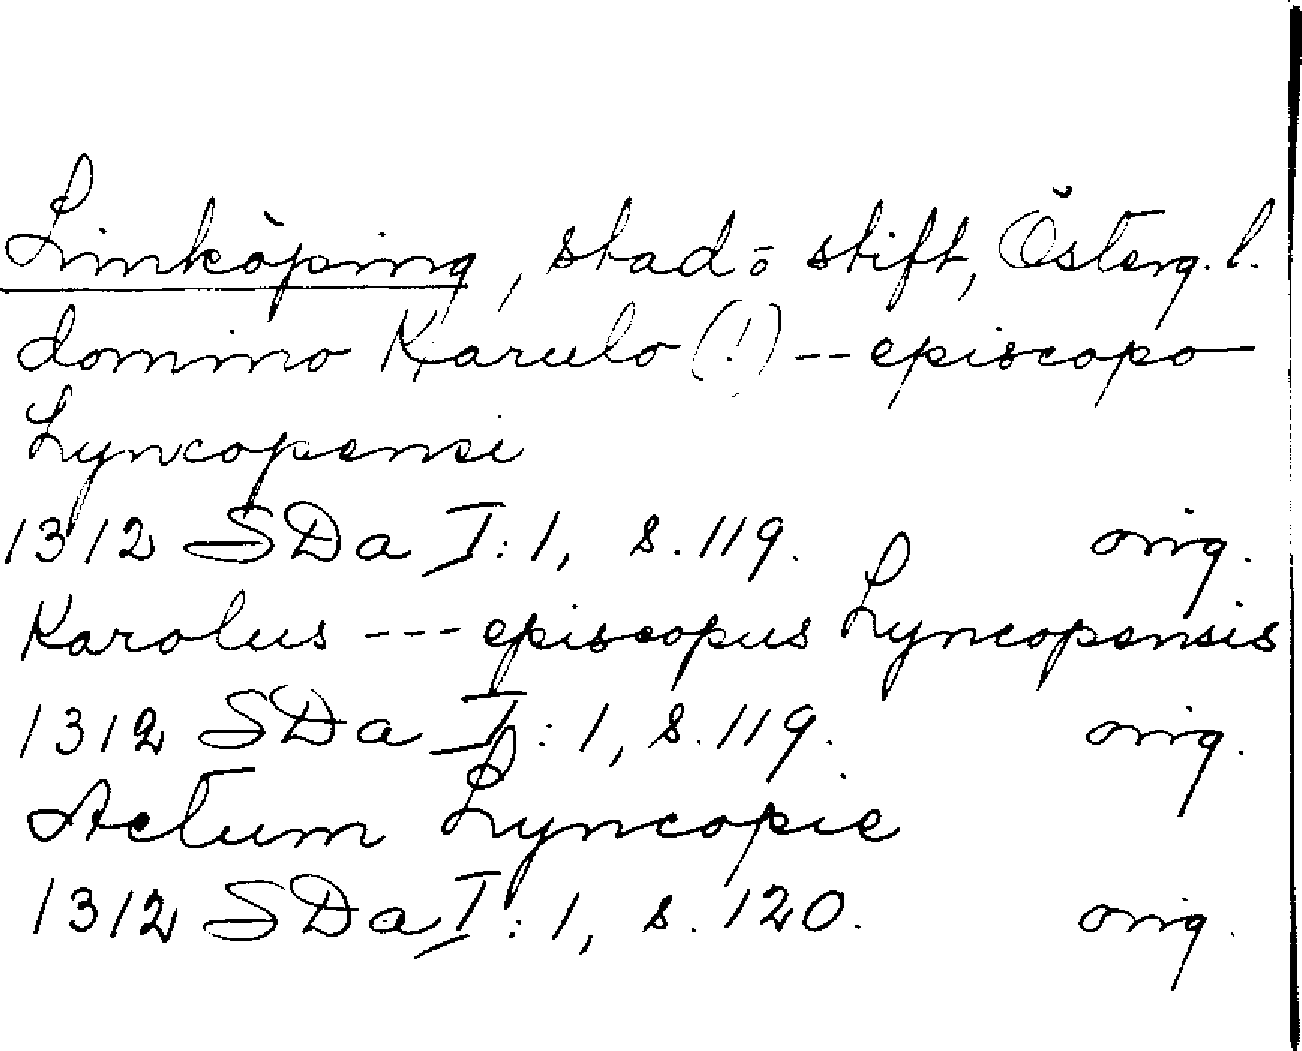 Linköping, stad o stift, Österg. l.
domino Karulo (!) -- episcopo
Lyncopensi
1312 SDa I:1, s. 119. orig.
Karolus --- episcopus Lyncopensis
1312 SDa I:1, s. 119. orig.
Actum Lyncopie
1312 SDa I:1, s. 120. orig.